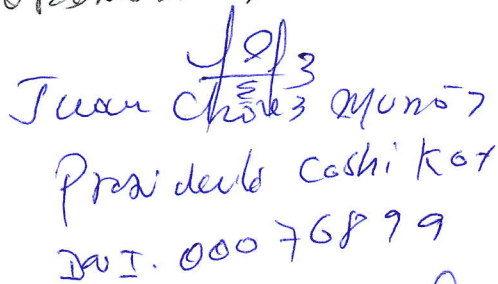 Juan Chávez Muñoz
Presidente Coshikox
DNI. 00076899